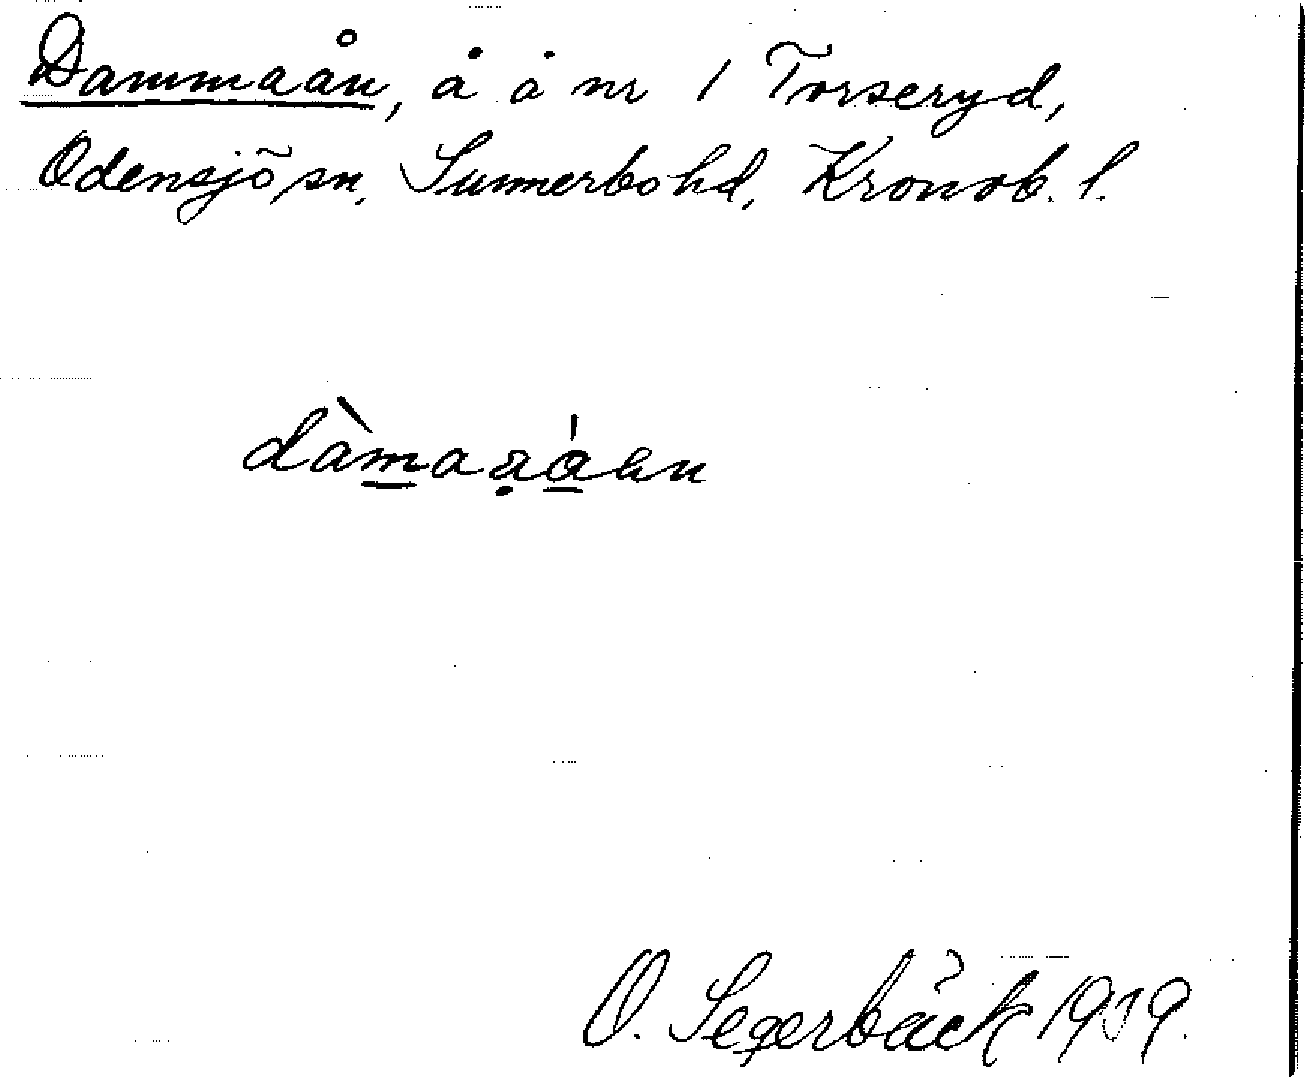 Dammaån, å å nr 1 Torseryd,
Odensjö sn, Sunnerbo hd, Kronob. l.
O. Segerbäck 1939.